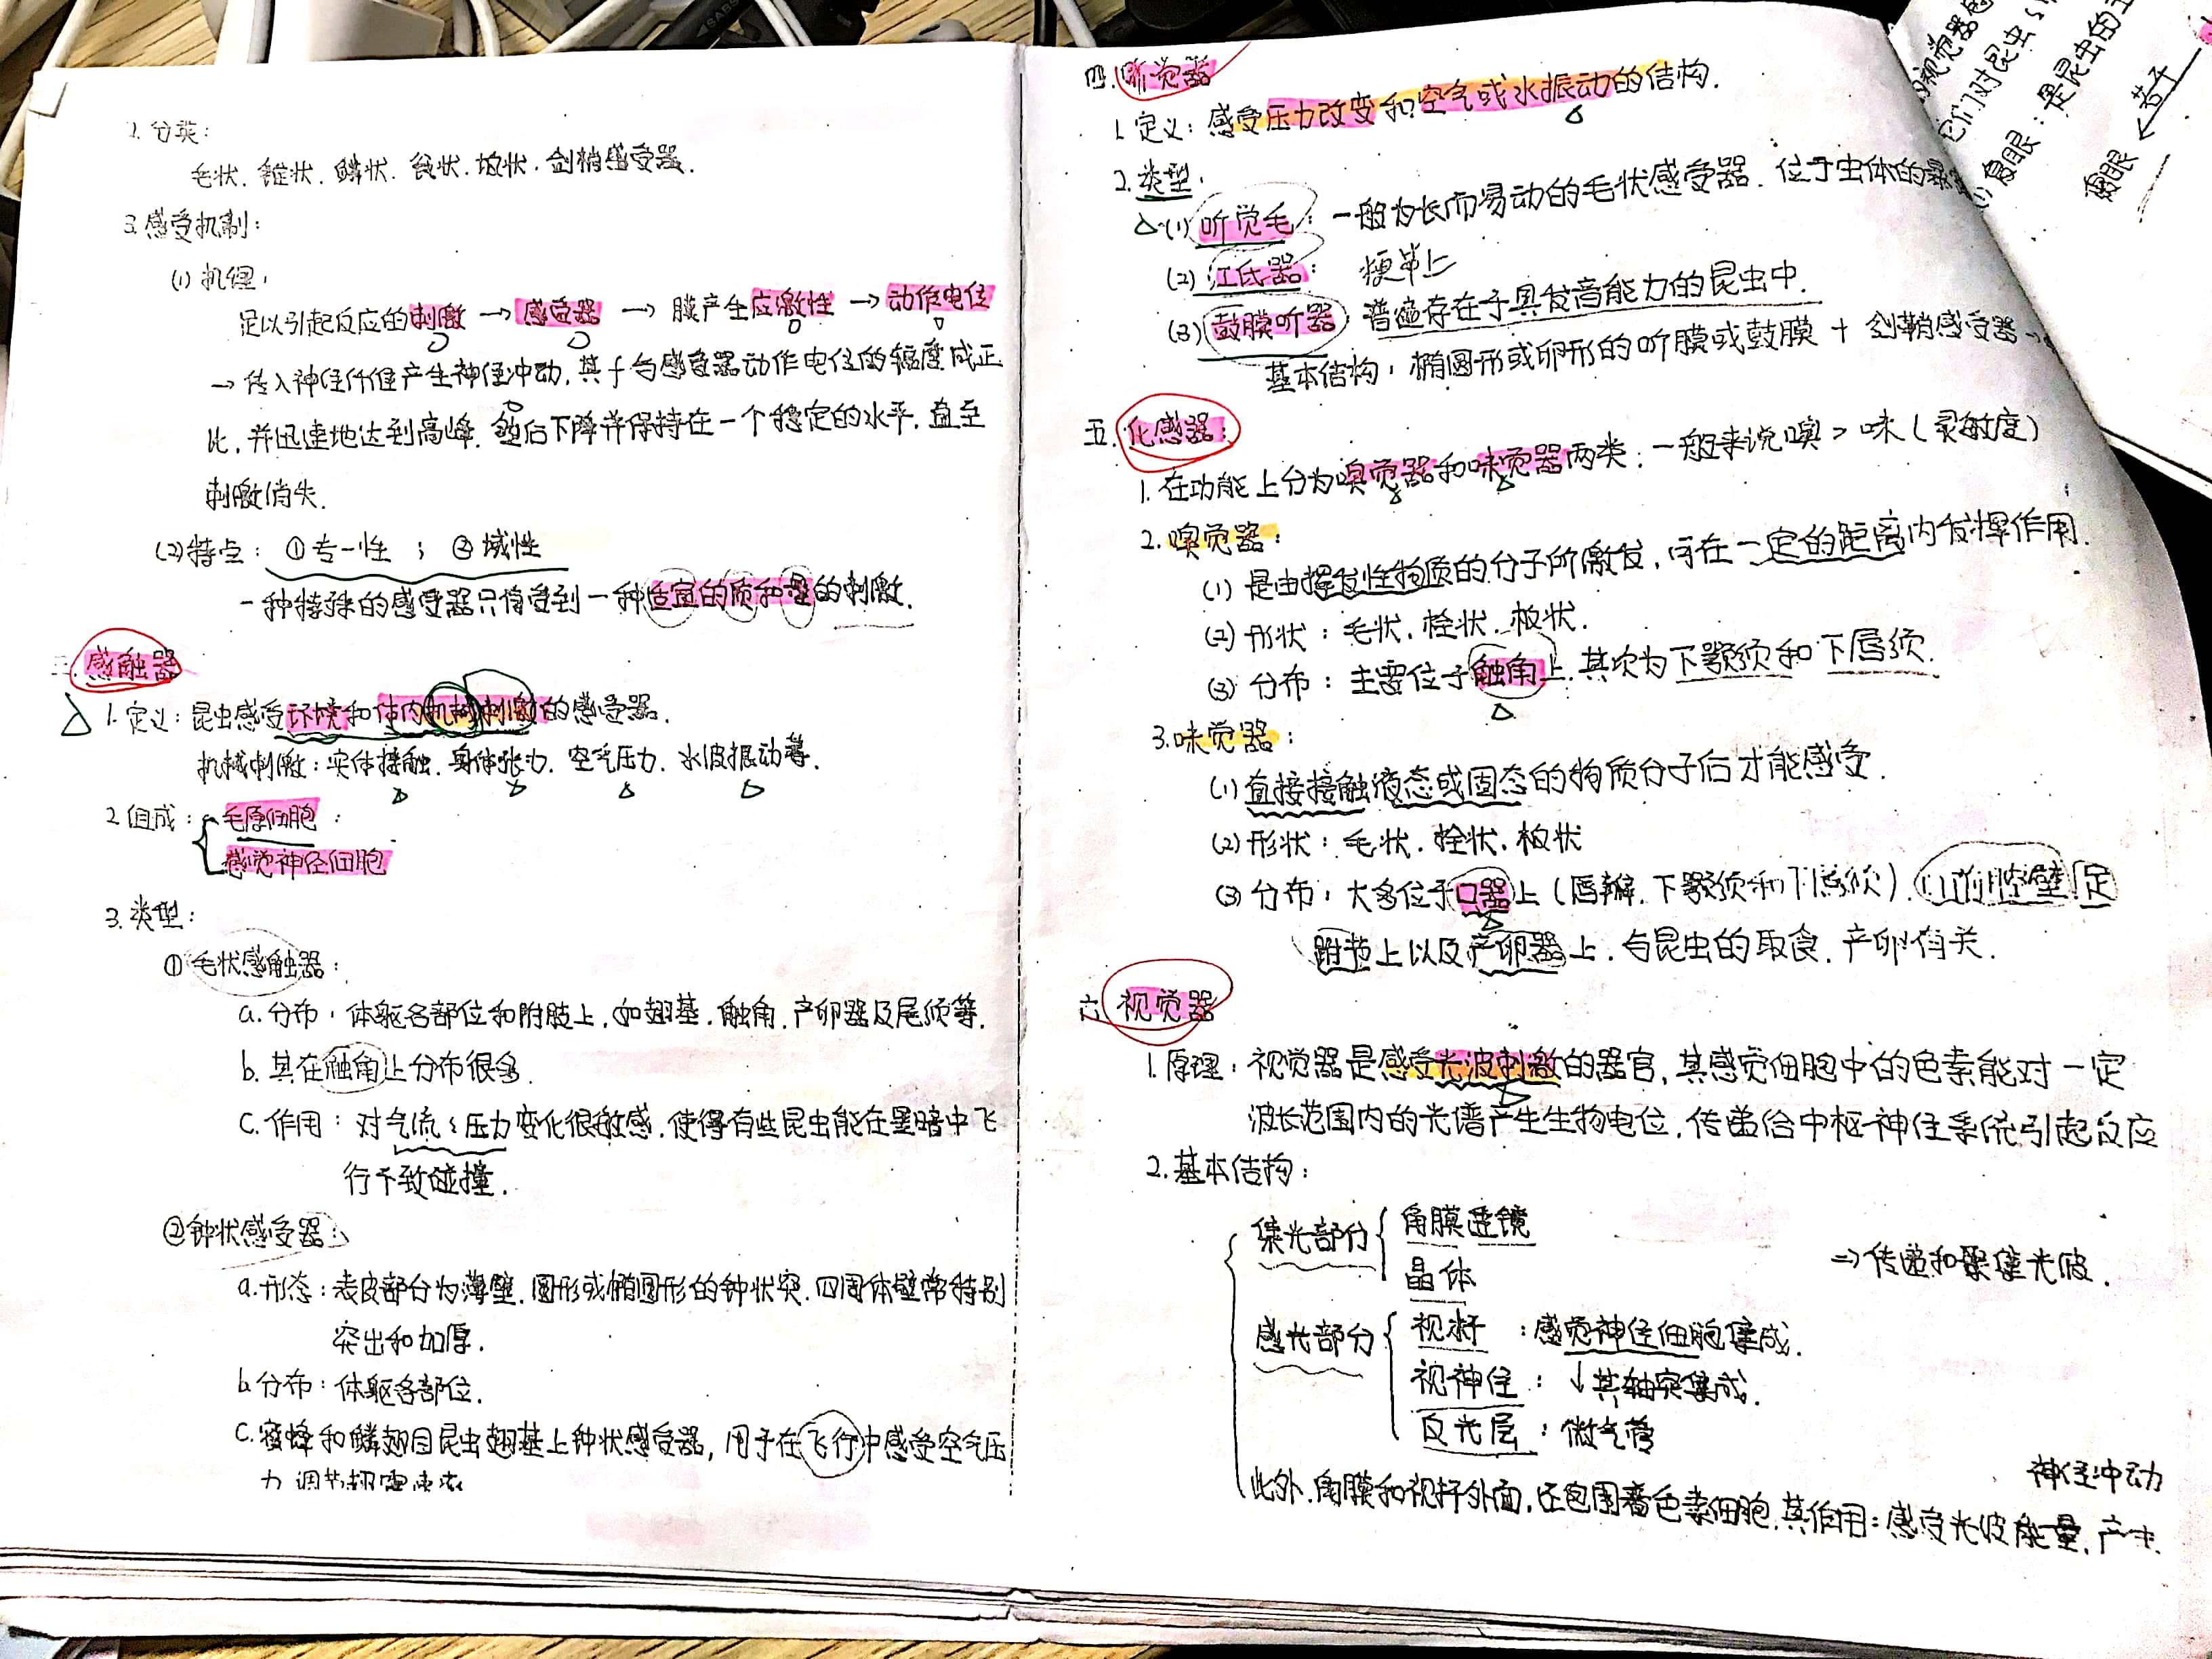 2. 分类:
毛状. 锥状. 鳞状. 钱状. 坛状. 剑梢感受器.
3. 感受机制:
(1) 机理:
足以引起反应的刺激 → 感受器 → 膜产生应激性 → 动作电位
→ 传入神经纤维产生神经冲动. 其f与感受器动作电位的幅度成正
比, 并迅速地达到高峰. 然后下降并保持在一个稳定的水平. 直至
刺激消失.
(2) 特点: ① 专一性 ; ② 域性
一种特殊的感受器只接受到一种适宜的质和量的刺激.
三. 感触器
△ 1. 定义: 昆虫感受环境和体内机械刺激的感受器.
机械刺激: 实体接触. 身体张力. 空气压力. 水波振动等.
2 组成: 毛原细胞
感觉神经细胞
3. 类型:
① 毛状感触器:
a. 分布: 体躯各部位和附肢上. 如翅基. 触角. 产卵器及尾须等.
b. 其在触角上分布很多.
c. 作用: 对气流、压力变化很敏感. 使得有些昆虫能在黑暗中飞
行不致碰撞.
② 钟状感受器:
a. 形态: 表皮部分为薄壁. 圆形或椭圆形的钟状突. 四周体壁常特别
突出和加厚.
b. 分布: 体躯各部位.
c. 蜜蜂和鳞翅目昆虫翅基上钟状感受器, 用于在飞行中感受空气压
力
四. 听觉器
1. 定义: 感受压力改变和空气或水振动的结构.
2. 类型:
△ (1) 听觉毛: 一般为长而易动的毛状感受器. 位于虫体的暴
(2) 江氏器: 梗节上
(3) 鼓膜听器: 普遍存在于具发音能力的昆虫中.
基本结构: 椭圆形或卵形的听膜或鼓膜 + 剑鞘感受器
五. 化感器:
1. 在功能上分为嗅觉器和味觉器两类: 一般来说嗅 > 味 (灵敏度)
2. 嗅觉器:
(1) 是由挥发性物质的分子所激发, 可在一定的距离内发挥作用.
(2) 形状: 毛状. 栓状. 板状.
(3) 分布: 主要位于触角上. 其次为下颚须和下唇须.
3. 味觉器:
(1) 直接接触液态或固态的物质分子后才能感受.
(2) 形状: 毛状. 栓状. 板状
(3) 分布: 大多位于口器上 (唇瓣. 下颚须和下唇须). 口前腔壁. 足
跗节上以及产卵器上. 与昆虫的取食. 产卵有关.
六. 视觉器
1. 原理: 视觉器是感受光波刺激的器官, 其感觉细胞中的色素能对一定
波长范围内的光谱产生生物电位. 传递给中枢神经系统引起反应
2. 基本结构:
集光部分 角膜透镜
晶体 ⇒ 传递和聚集光波.
感光部分 视杆 : 感觉神经细胞集成.
视神经 : ↓其轴突集成.
反光层 : 微气管
神经冲动
此外. 角膜和视杆外面, 还包围着色素细胞. 其作用: 感受光波能量. 产生
的视觉器
它们对昆虫
(1) 复眼 : 是昆虫的主
复眼 ← 若干